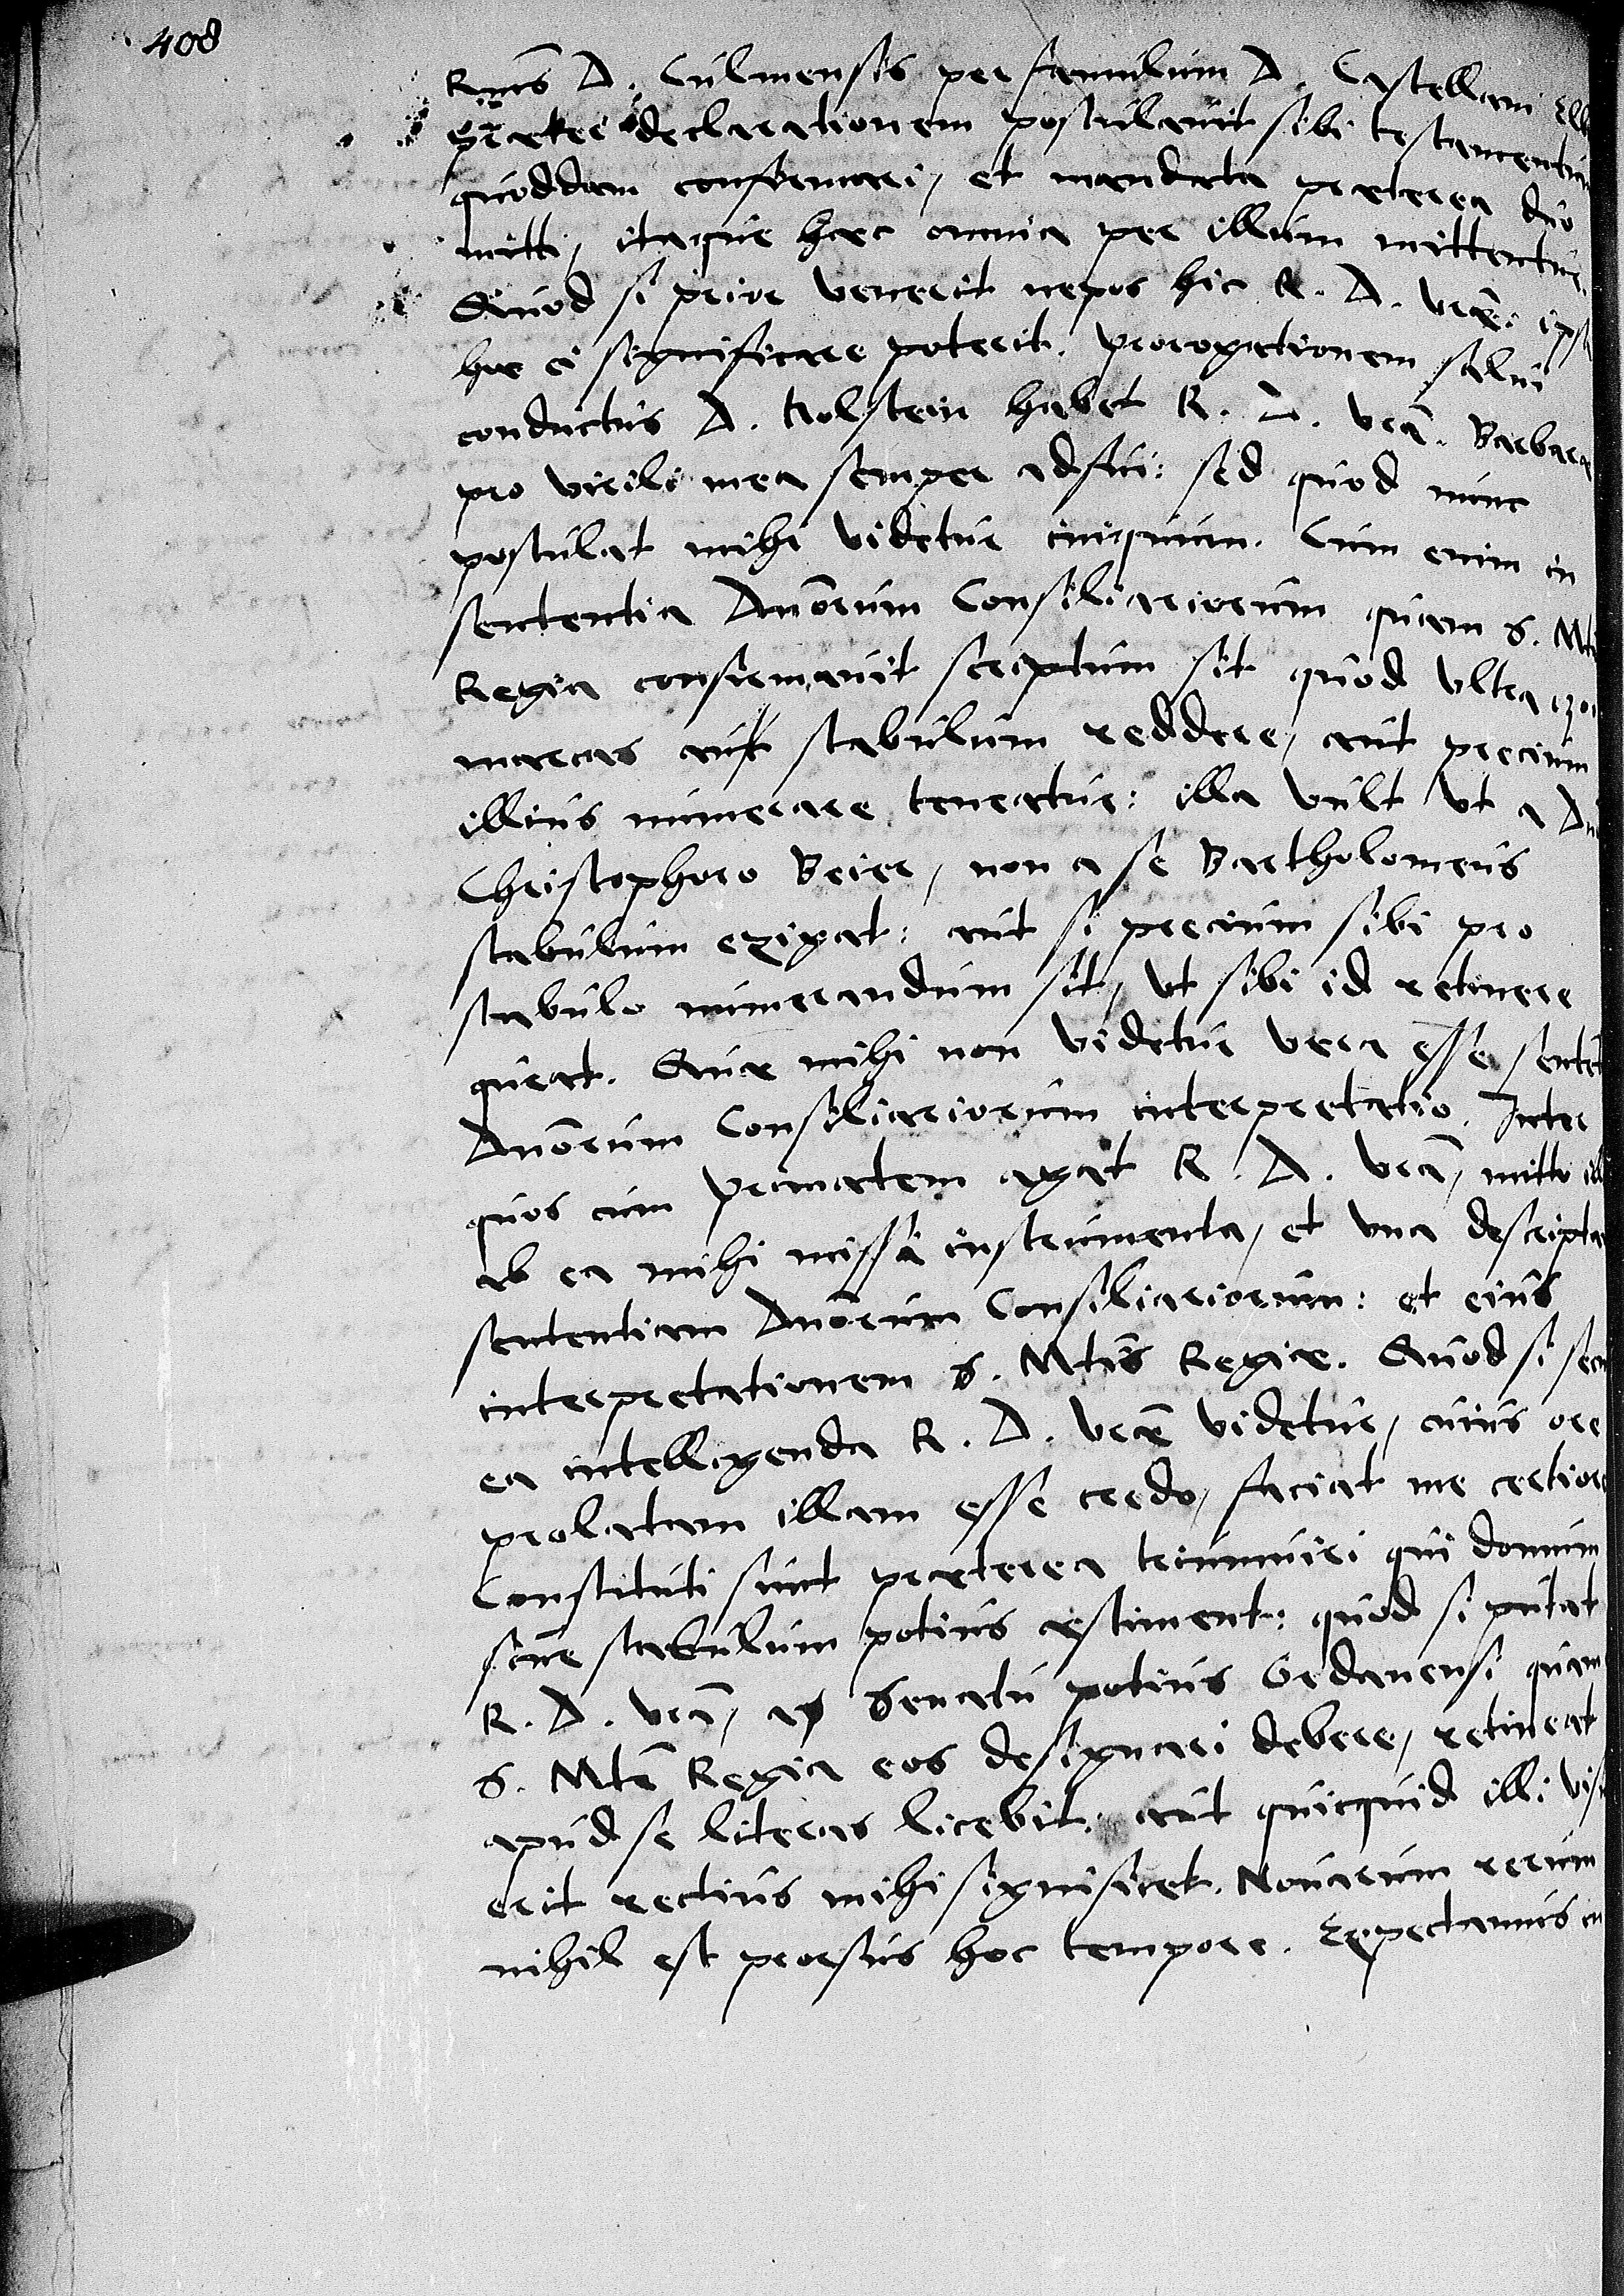 408
Rmus D. Culmensis per famulum D. Castellani Elb
praeter declarationem postulavit sibi testamentum
quoddam confirmari, et mandata praeterea duo
mitti, itaque haec omnia per illum mittentur.
Quod si prior venerit nepos hic R. D. vrae: ipse
hoc ei significare poterit. prorogationem salvi
conductus D. Holstein habet R. D. vra. Barbarae
pro virili mea semper adfui: sed quod nunc
postulat mihi videtur iniquum. Cum enim in
sententia Dnorum Consiliariorum quam S. Mtas
Regia confirmavit scriptum sit quod ultra 130
marcas aut stabulum reddere, aut precium
illius numerare teneatur: illa vult ut a Dno
Christophoro Beier, non a se Bartholomeus
stabulum exigat: aut si precium sibi pro
stabulo numerandum sit, ut sibi id retinere
queat. Quae mihi non videtur vera esse senten
Dnorum Consiliariorum interpretatio. Inter
quos cum primatem agat R. D. vra, mitto illi
ab ea mihi missa instrumenta, et una descriptam
sententiam Dnorum Consiliariorum: et eius
interpretationem S. Mtis Regiae. Quod si secus
ea intelligenda R. D. vrae videtur, cuius ore
prolatam illam esse credo, faciat me certiorem
Constituti sunt praeterea triumviri qui domum
sine stabulum potius aestiment: quod si putat
R. D. vra, a Senatu potius Gedanensi quam
S. Mte Regia eos designari debere, retineat
apud se literas licebit: aut quicquid illi vis
erit rectius mihi significet. Novarum rerum
nihil est prorsus hoc tempore. Expectamus in